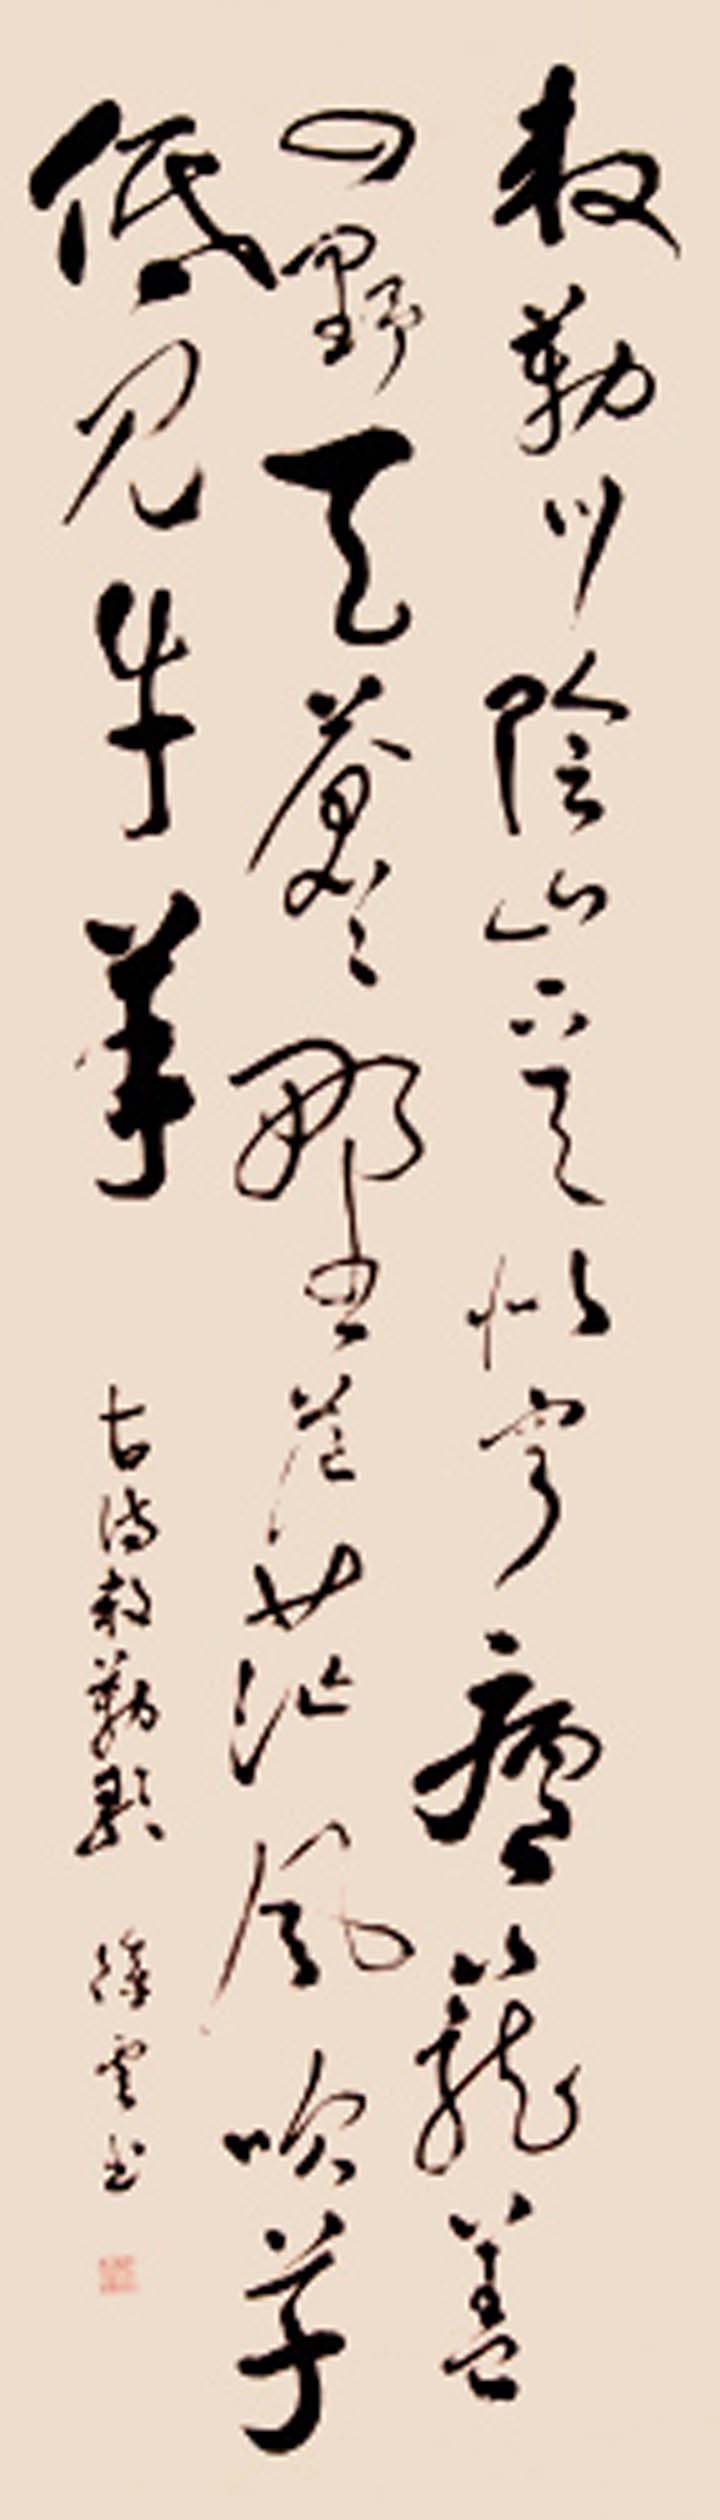 敕勒川陰山下天似穹廬籠蓋
四野天蒼々野茫茫風吹草
低見牛羊
古詩敕勒歌 徐雲書